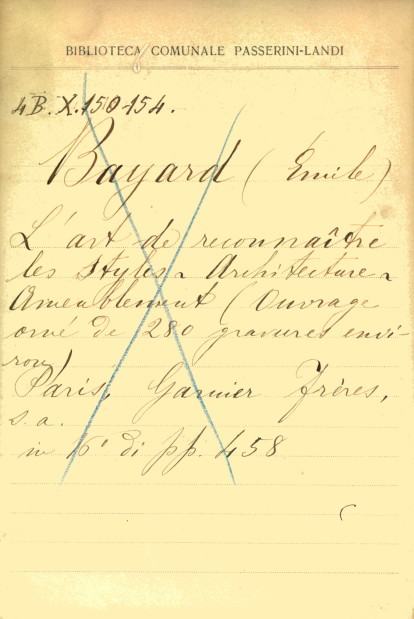 BIBLIOTECA COMUNALE PASSERINI-LANDI
4B. X. 150-154.
Bayard (Émile)
L'art de reconnaître
les styles - Architecture -
Ameublement (Ouvrage
orné de 280 gravures envi-
ron)
Paris, Garnier Frères,
s. a.
in 16° di pp. 458